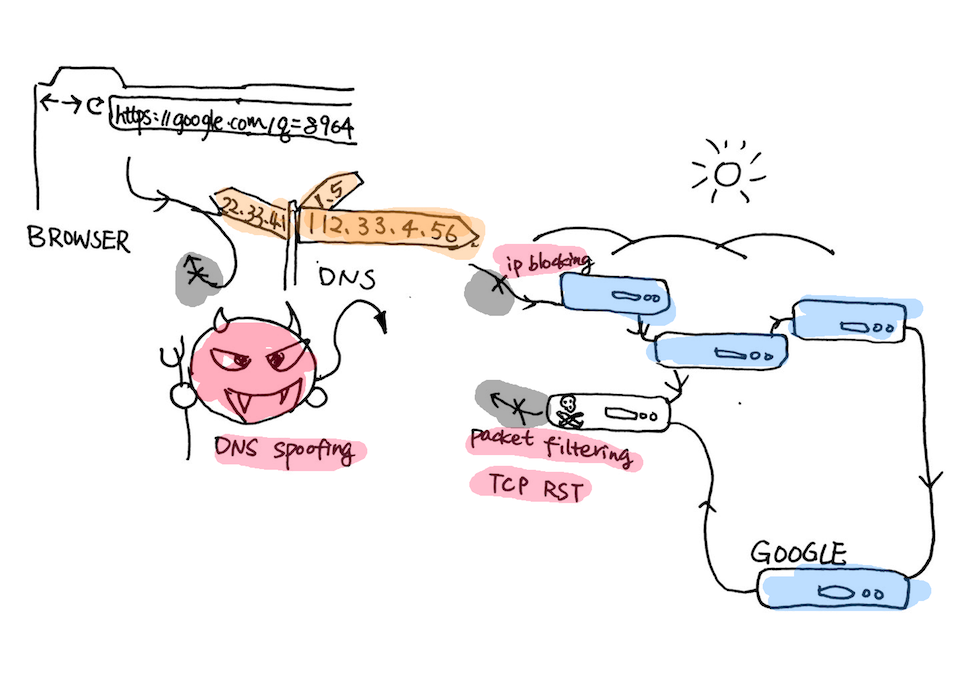 https://google.com/q=8964
BROWSER
22.33.41
1.5
112.33.4.56
DNS
ip blocking
DNS spoofing
packet filtering
TCP RST
GOOGLE